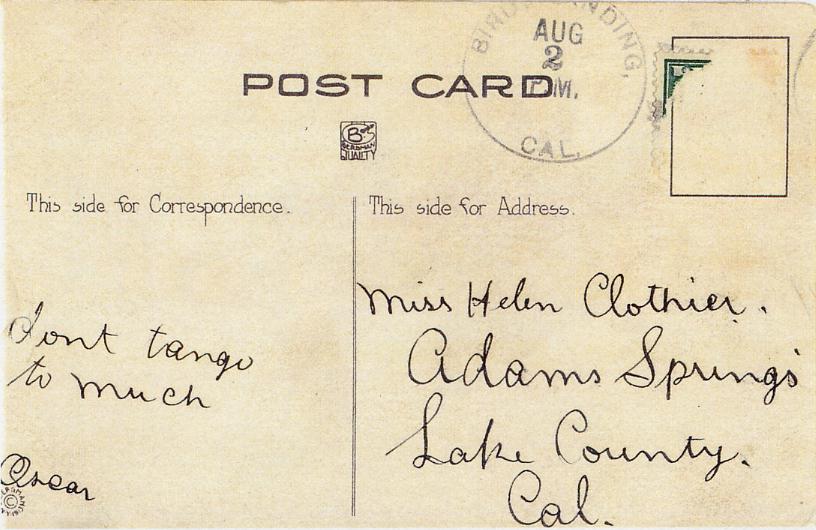 AUG
2
M.
CAL.
POST CARD
BERGMAN
QUALITY
This side for Correspondence.
This side for Address.
Dont tango
to much
Oscar
Miss Helen Clothier.
Adams Springs
Lake County.
Cal.